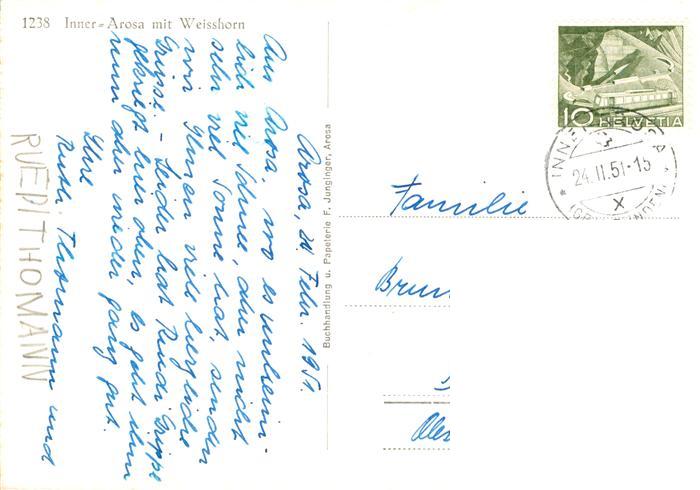 1238 Inner-Arosa mit Weisshorn
Arosa, 24. Febr. 1951.
Aus Arosa, wo es unheim-
lich viel Schnee, aber nicht
sehr viel Sonne hat, senden
wir Ihnen viele herzliche
Grüsse. - Leider hat Ruedi Grippe
gekriegt hier oben, es geht ihm
nun aber wieder ganz gut.
Ihre
Ruth Thomann und
RUEDI THOMANN
Buchhandlung u. Papeterie F. Junginger, Arosa
10 HELVETIA
INNERAROSA
24.II.51-15
X
(GRAUBÜNDEN)
Familie
Brun